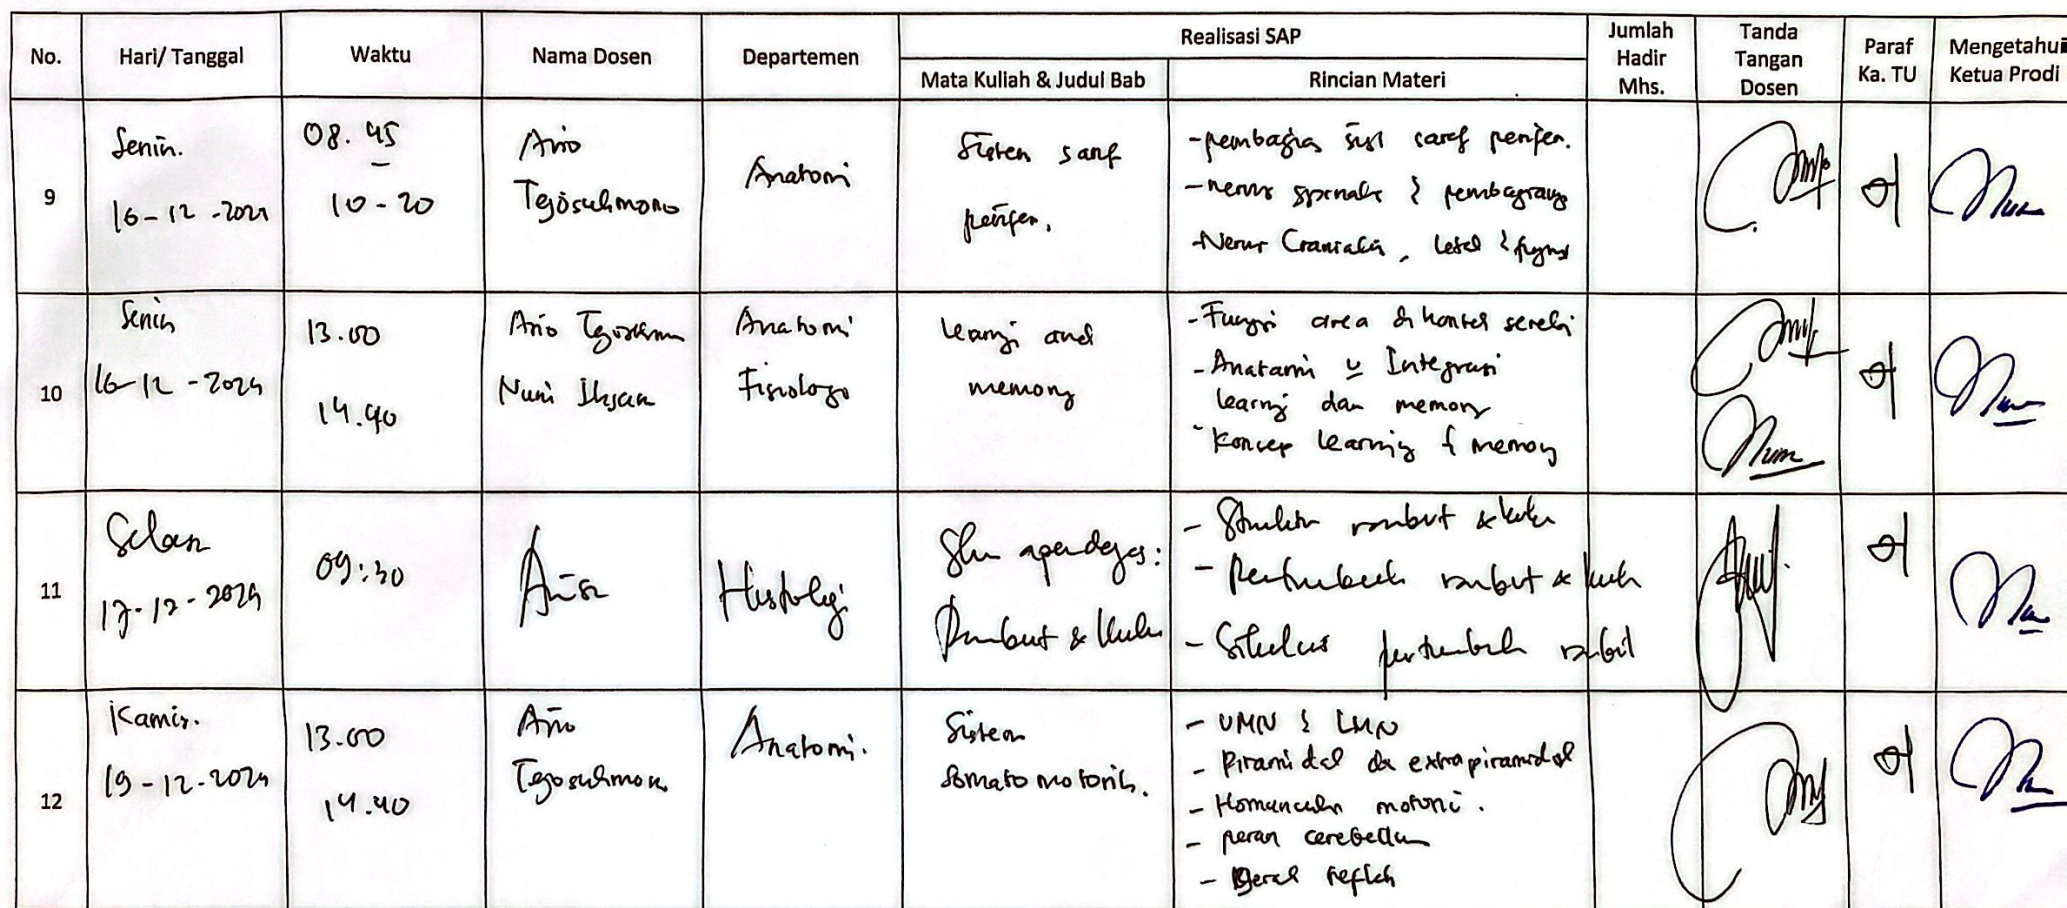 No. Hari/ Tanggal Waktu Nama Dosen Departemen Realisasi SAP Jumlah Hadir Mhs. Tanda Tangan Dosen Paraf Ka. TU Mengetahui Ketua Prodi
Mata Kuliah & Judul Bab Rincian Materi
9
Senin.
16-12-2024
08.45
-
10-20
Ario
Tejosukmono
Anatomi
Sistem saraf
perifer.
- pembagian sist saraf perifer.
- nervus spinalis & pembagiannya
- Nervus Cranialis, letak & fungsi
10
Senin
16-12-2024
13.00
14.40
Ario
Nuni Ihsan
Anatomi
Fisiologi
Learning and
memory
- Fungsi area di korteks serebri
- Anatomi Integrasi
learning dan memory
- Konsep learning & memory
11
Selasa
17-12-2024
09:30
Histologi
Rambut & kuku
- Struktur rambut & kuku
- Pertumbuhan rambut & kuku
- Siklus pertumbuhan rambut
12
Kamis.
19-12-2024
13.00
14.40
Ario
Tejosukmono
Anatomi.
Sistem
Somatomotorik.
- UMN & LMN
- Piramidal dan extrapiramidal
- Homunculus motorik.
- peran cerebellum
- Gerak reflek